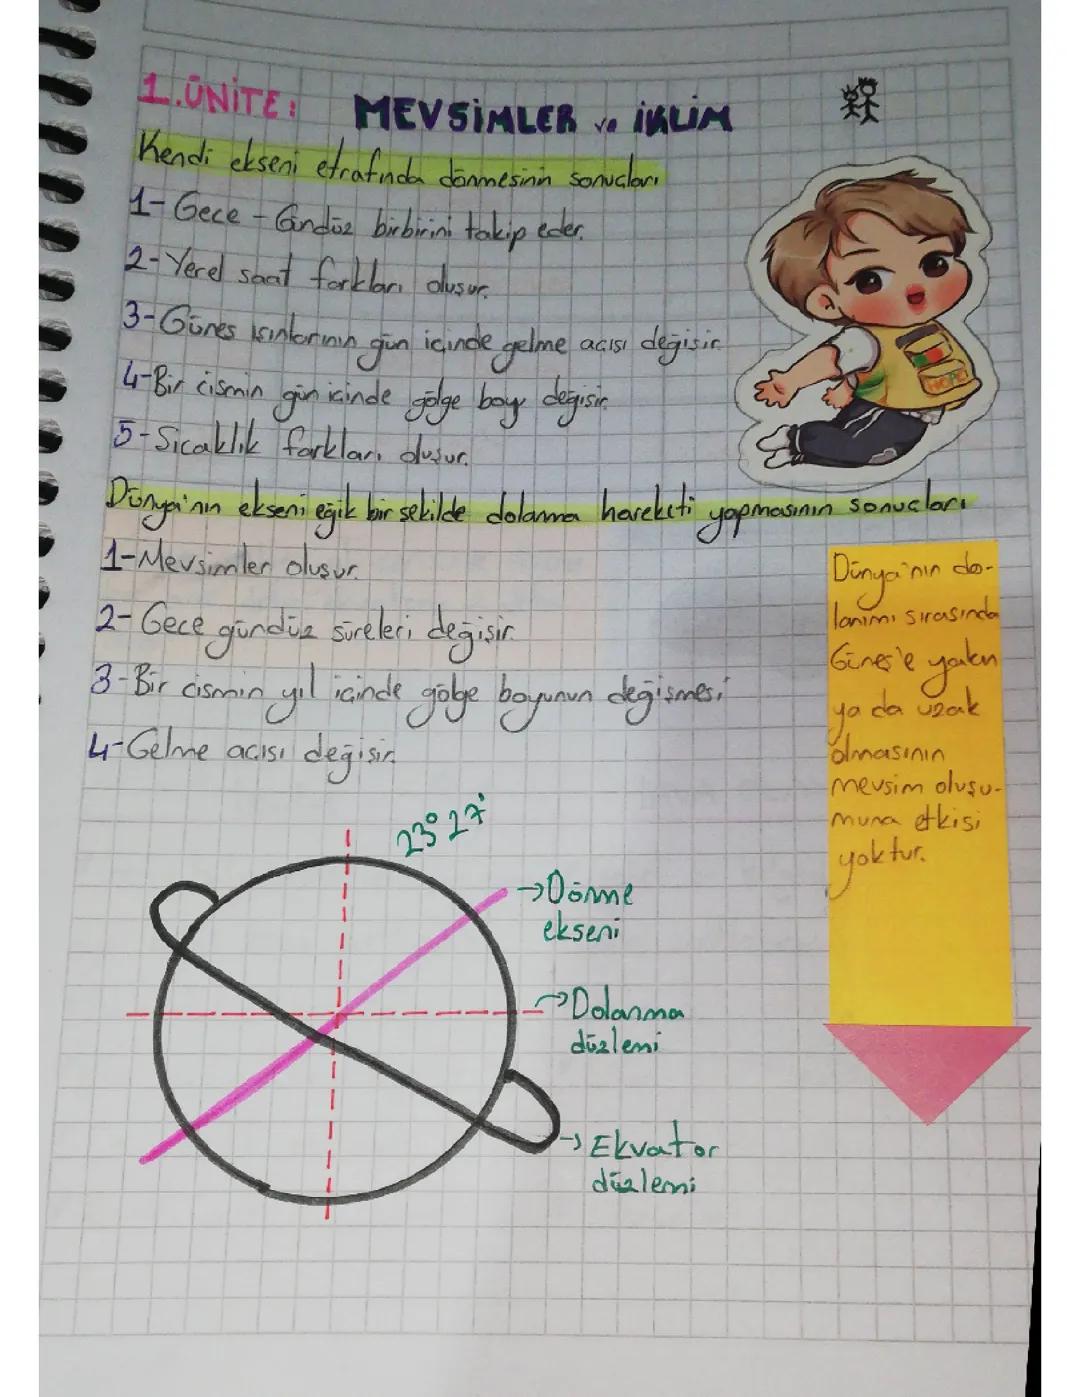 1.ÜNİTE: MEVSİMLER ve İKLİM
Kendi ekseni etrafında dönmesinin sonuçları
1- Gece - Gündüz birbirini takip eder.
2- Yerel saat farkları oluşur.
3- Güneş ışınlarının gün içinde gelme açısı değişir.
4- Bir cismin gün içinde gölge boyu değişir.
5- Sıcaklık farkları oluşur.
Dünya'nın ekseni eğik bir şekilde dolanma hareketi yapmasının sonuçları
1- Mevsimler oluşur.
2- Gece gündüz süreleri değişir.
3- Bir cismin yıl içinde gölge boyunun değişmesi
4- Gelme açısı değişir.
Dünya'nın do-
lanımı sırasında
Güneş'e yakın
ya da uzak
olmasının
mevsim oluşu-
muna etkisi
yoktur.
23° 27'
→Dönme
ekseni
→Dolanma
düzlemi
→Ekvator
düzlemi
HOPE